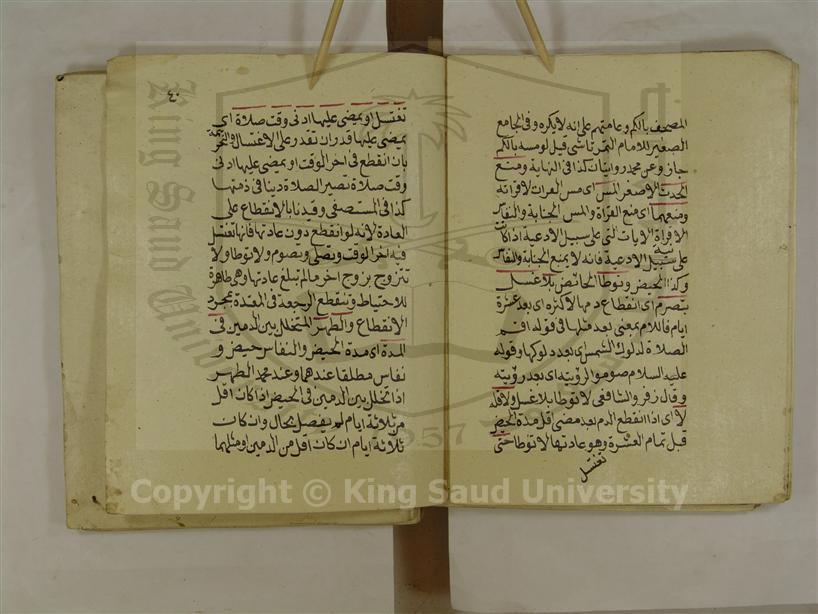 المصحف بالكم وعامتهم على انه لا يكره وفى الجامع
الصغير للامام التمرتاشى قيل لو مسه بالكم
جاز وعن محمد روايتان كذا فى النهاية ومنع
الحدث الاصغر المس اى مس القرآن لا قراته
ومنعهما اى منع القراة والمس الجنابة والنفاس
الا قراة الايات التى على سبيل الادعية اذا كانت
على سبيل الادعية فانه لا يمنع الجنابة والنفاس
وكذا الحيض وتوطأ الحائض بلا غسل
بتصرم اى انقطاع دمها لاكثره اى بعد عشرة
ايام فاللام بمعنى بعد مثلها فى قوله اقم
الصلاة لدلوك الشمس اى بعد دلوكها وقوله
عليه السلام صوموا لرؤيته اى بعد رؤيته
وقال زفر والشافعى لا توطأ بلا غسل ولاقله
لا اى اذا انقطع الدم بعد مضى اقل مدة الحيض
قبل تمام العشرة وهو عادتها لا توطأ حتى
تغتسل
٤٠
تغتسل او يمضى عليها ادنى وقت صلاة اى
يمضى عليها قدر ان تقدر على الاغتسال والتحريمة
بان انقطع فى اخر الوقت او يمضى عليها ادنى
وقت صلاة تصير الصلاة دينا فى ذمتها
كذا فى المستصفى وقيدنا بالانقطاع على
العادة لانه لو انقطع دون عادتها فانها تغتسل
فيه اخر الوقت وتصلى وتصوم ولا توطأ ولا
تتزوج بزوج اخر مالم تبلغ عادتها وهى طاهرة
للاحتياط وتنقطع الرجعة فى العدة بمجرد
الانقطاع والطهر المتخلل بين الدمين فى
المدة اى مدة الحيض والنفاس حيض و
نفاس مطلقا عندهما وعند محمد الطهر
اذا تخلل بين الدمين فى الحيض اذا كان اقل
من ثلاثة ايام لم يفصل بحال وان كان
ثلاثة ايام ان كان اقل من الدمين او مثلهما
King Saud University
1957
Copyright © King Saud University